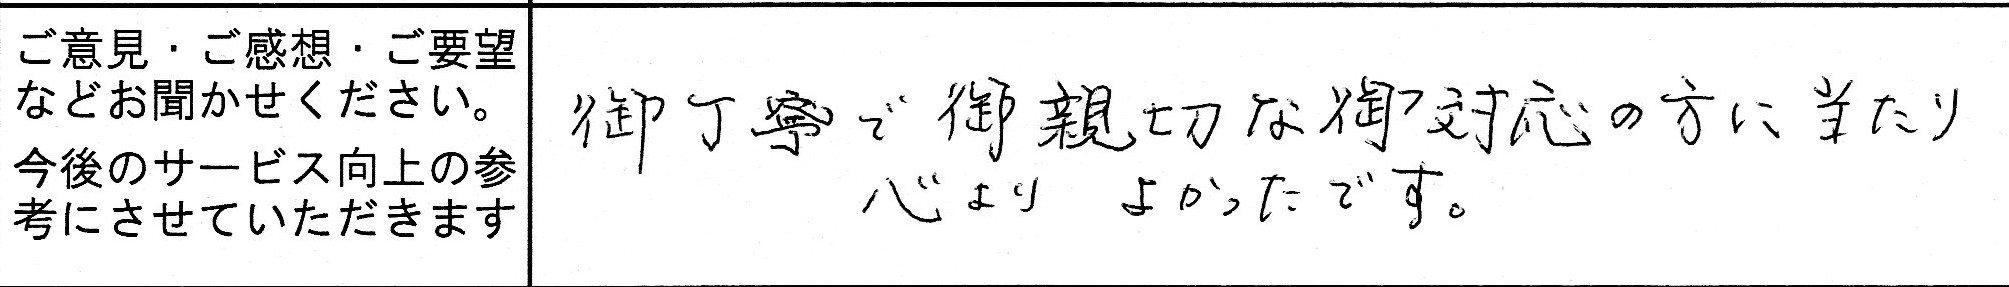 ご意見・ご感想・ご要望
などお聞かせください。
今後のサービス向上の参
考にさせていただきます
御丁寧で御親切な御対応の方に当たり
心より よかったです。